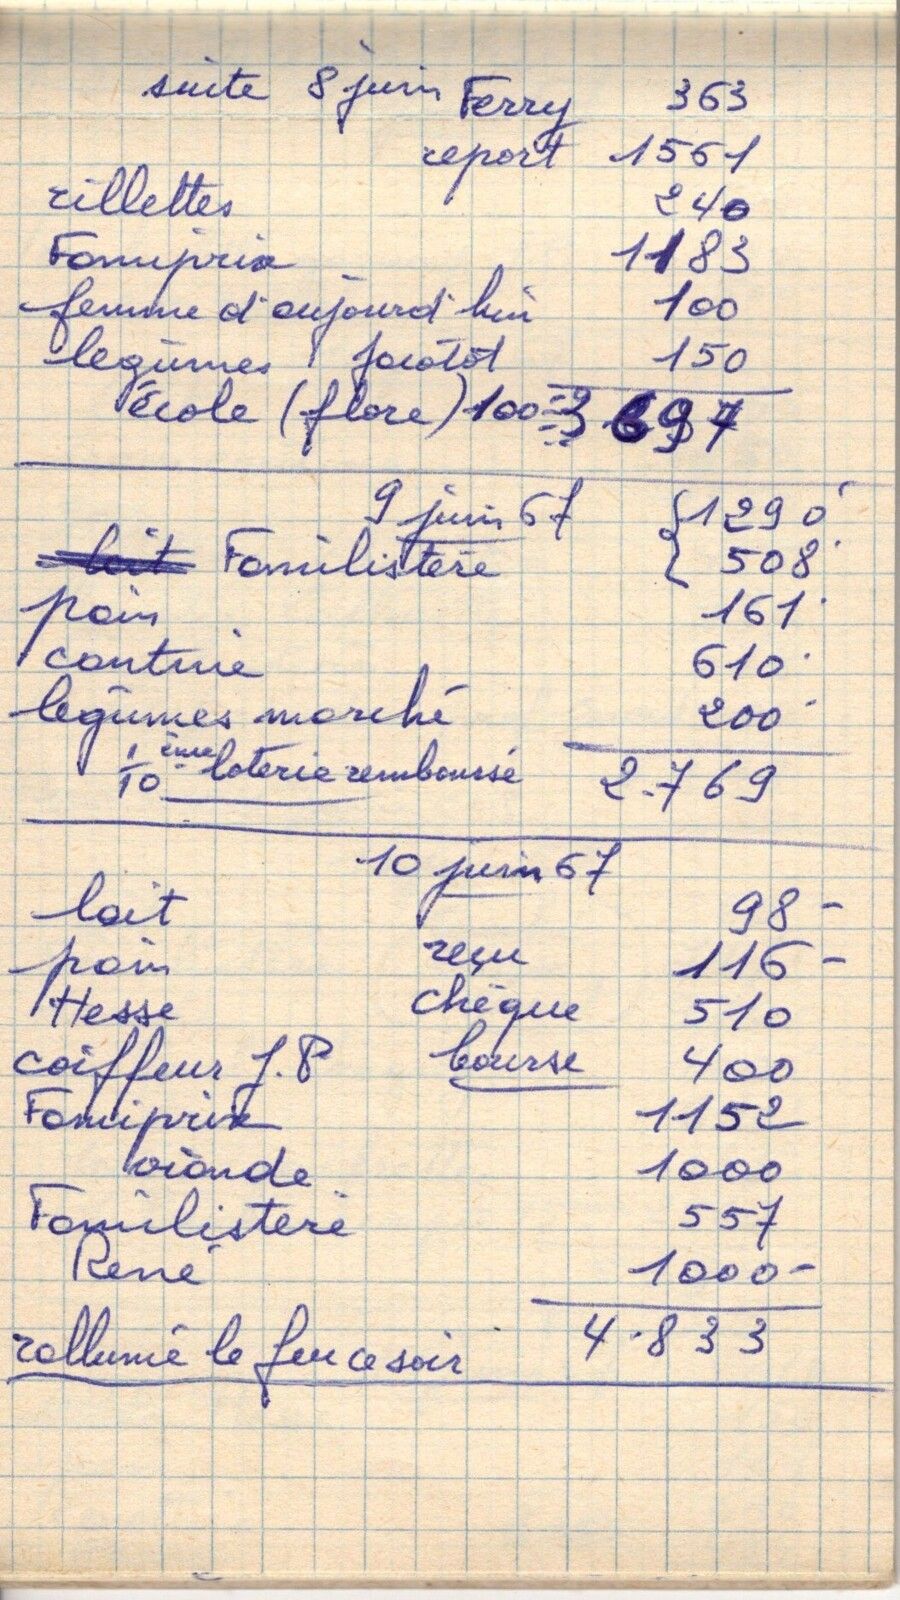 suite 8 juin Ferry 363
report 1561
rillettes 240
Familprix 1183
femme d'aujourd'hui 100
legûmes 150
École (flore) 100 = 3697
9 juin 67 { 1290
lait Familistère 508
pain 161
cantine 610
legûmes marché 200
1/10 ème loterie remboursé 2.769
10 juin 67
lait 98 -
pain reçu 116 -
Hesse chèque 510
coiffeur J.P bourse 400
Famiprix 1152
viande 1000
Familisteré 557
René 1000 -
rallumé le feu ce soir 4.833